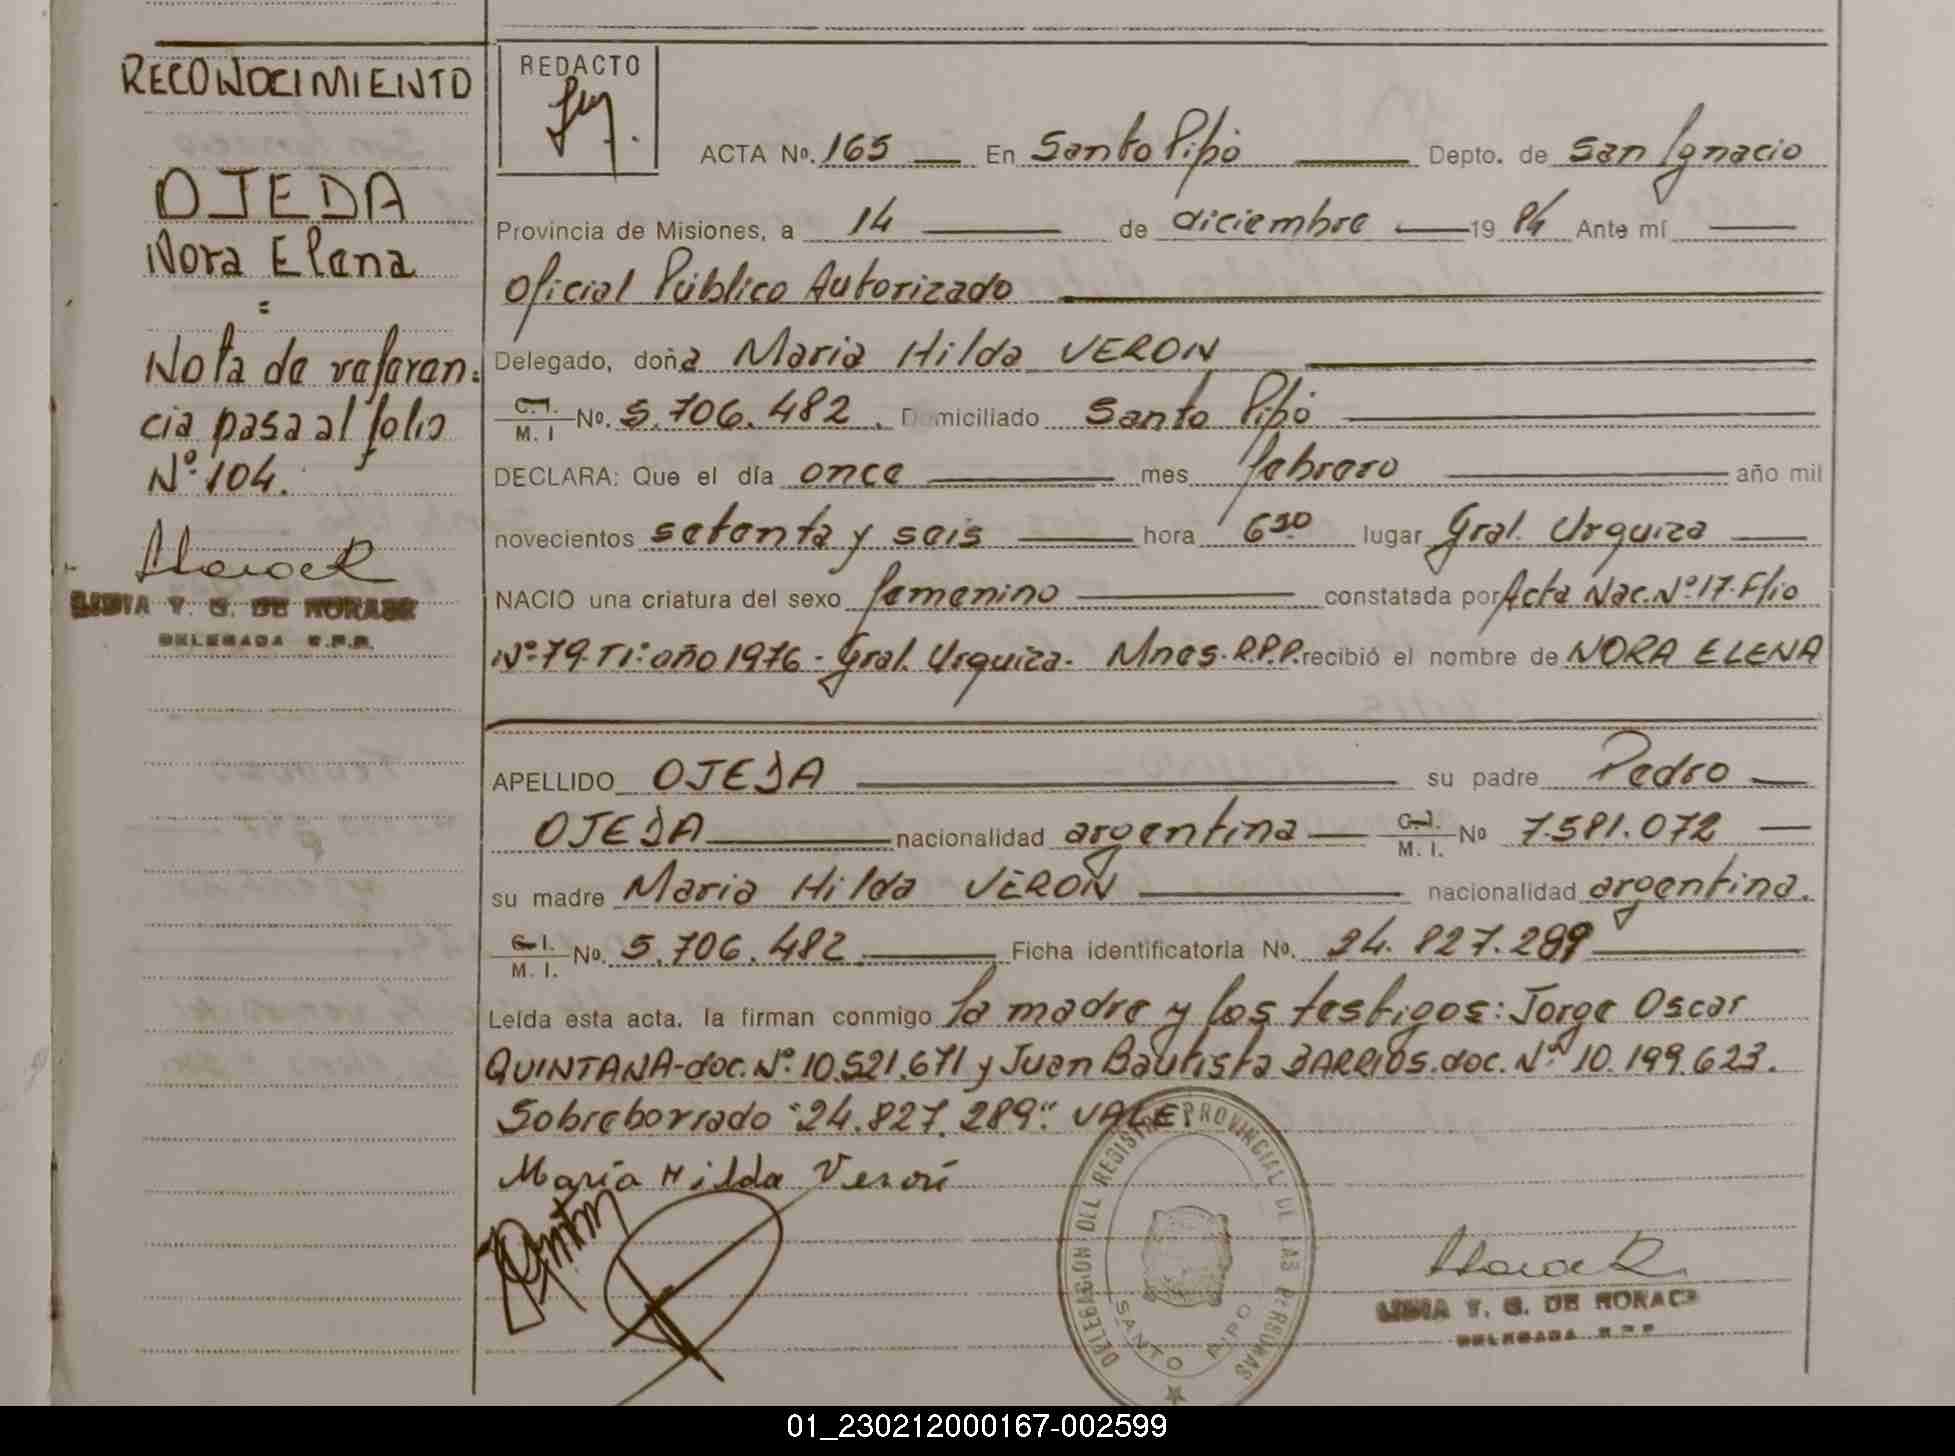 RECONOCIMIENTO
OJEDA
Nora Elena
=
Nota de referen=
cia pasa al folio
Nº 104.
DELEGADA R.P.P.
REDACTO
ACTA Nº. 165 En Santo Pipó Depto. de San Ignacio
Provincia de Misiones, a 14 de diciembre 19 84 Ante mí
Oficial Público Autorizado
Delegado, doña Maria Hilda VERON
C.I. M. I Nº. 5.706.482. Domiciliado Santo Pipó
DECLARA: Que el día once mes febrero año mil
novecientos setenta y seis hora 6 30 lugar Gral. Urquiza
NACIO una criatura del sexo femenino constatada por Acta Nac. Nº 17. Flio
Nº 79. Tº 1º año 1976 - Gral. Urquiza. Mnes. R.P.P. recibió el nombre de NORA ELENA
APELLIDO OJEDA su padre Pedro
OJEDA nacionalidad argentina C.I. M. I. Nº 7.581.072
su madre Maria Hilda VERON nacionalidad argentina.
C.I. M. I. Nº. 5.706.482 Ficha identificatoria Nº. 24.827.289
Leída esta acta. la firman conmigo la madre y los testigos: Jorge Oscar
QUINTANA-doc. Nº. 10.521.671 y Juan Bautista BARRIOS. doc. Nº 10.199.623.
Sobreborrado "24.827.289" VALE
María Hilda Verón
DELEGACION DEL REGISTRO PROVINCIAL DE LAS PERSONAS
SANTO PIPO
DELEGADA R.P.P.
01_230212000167-002599